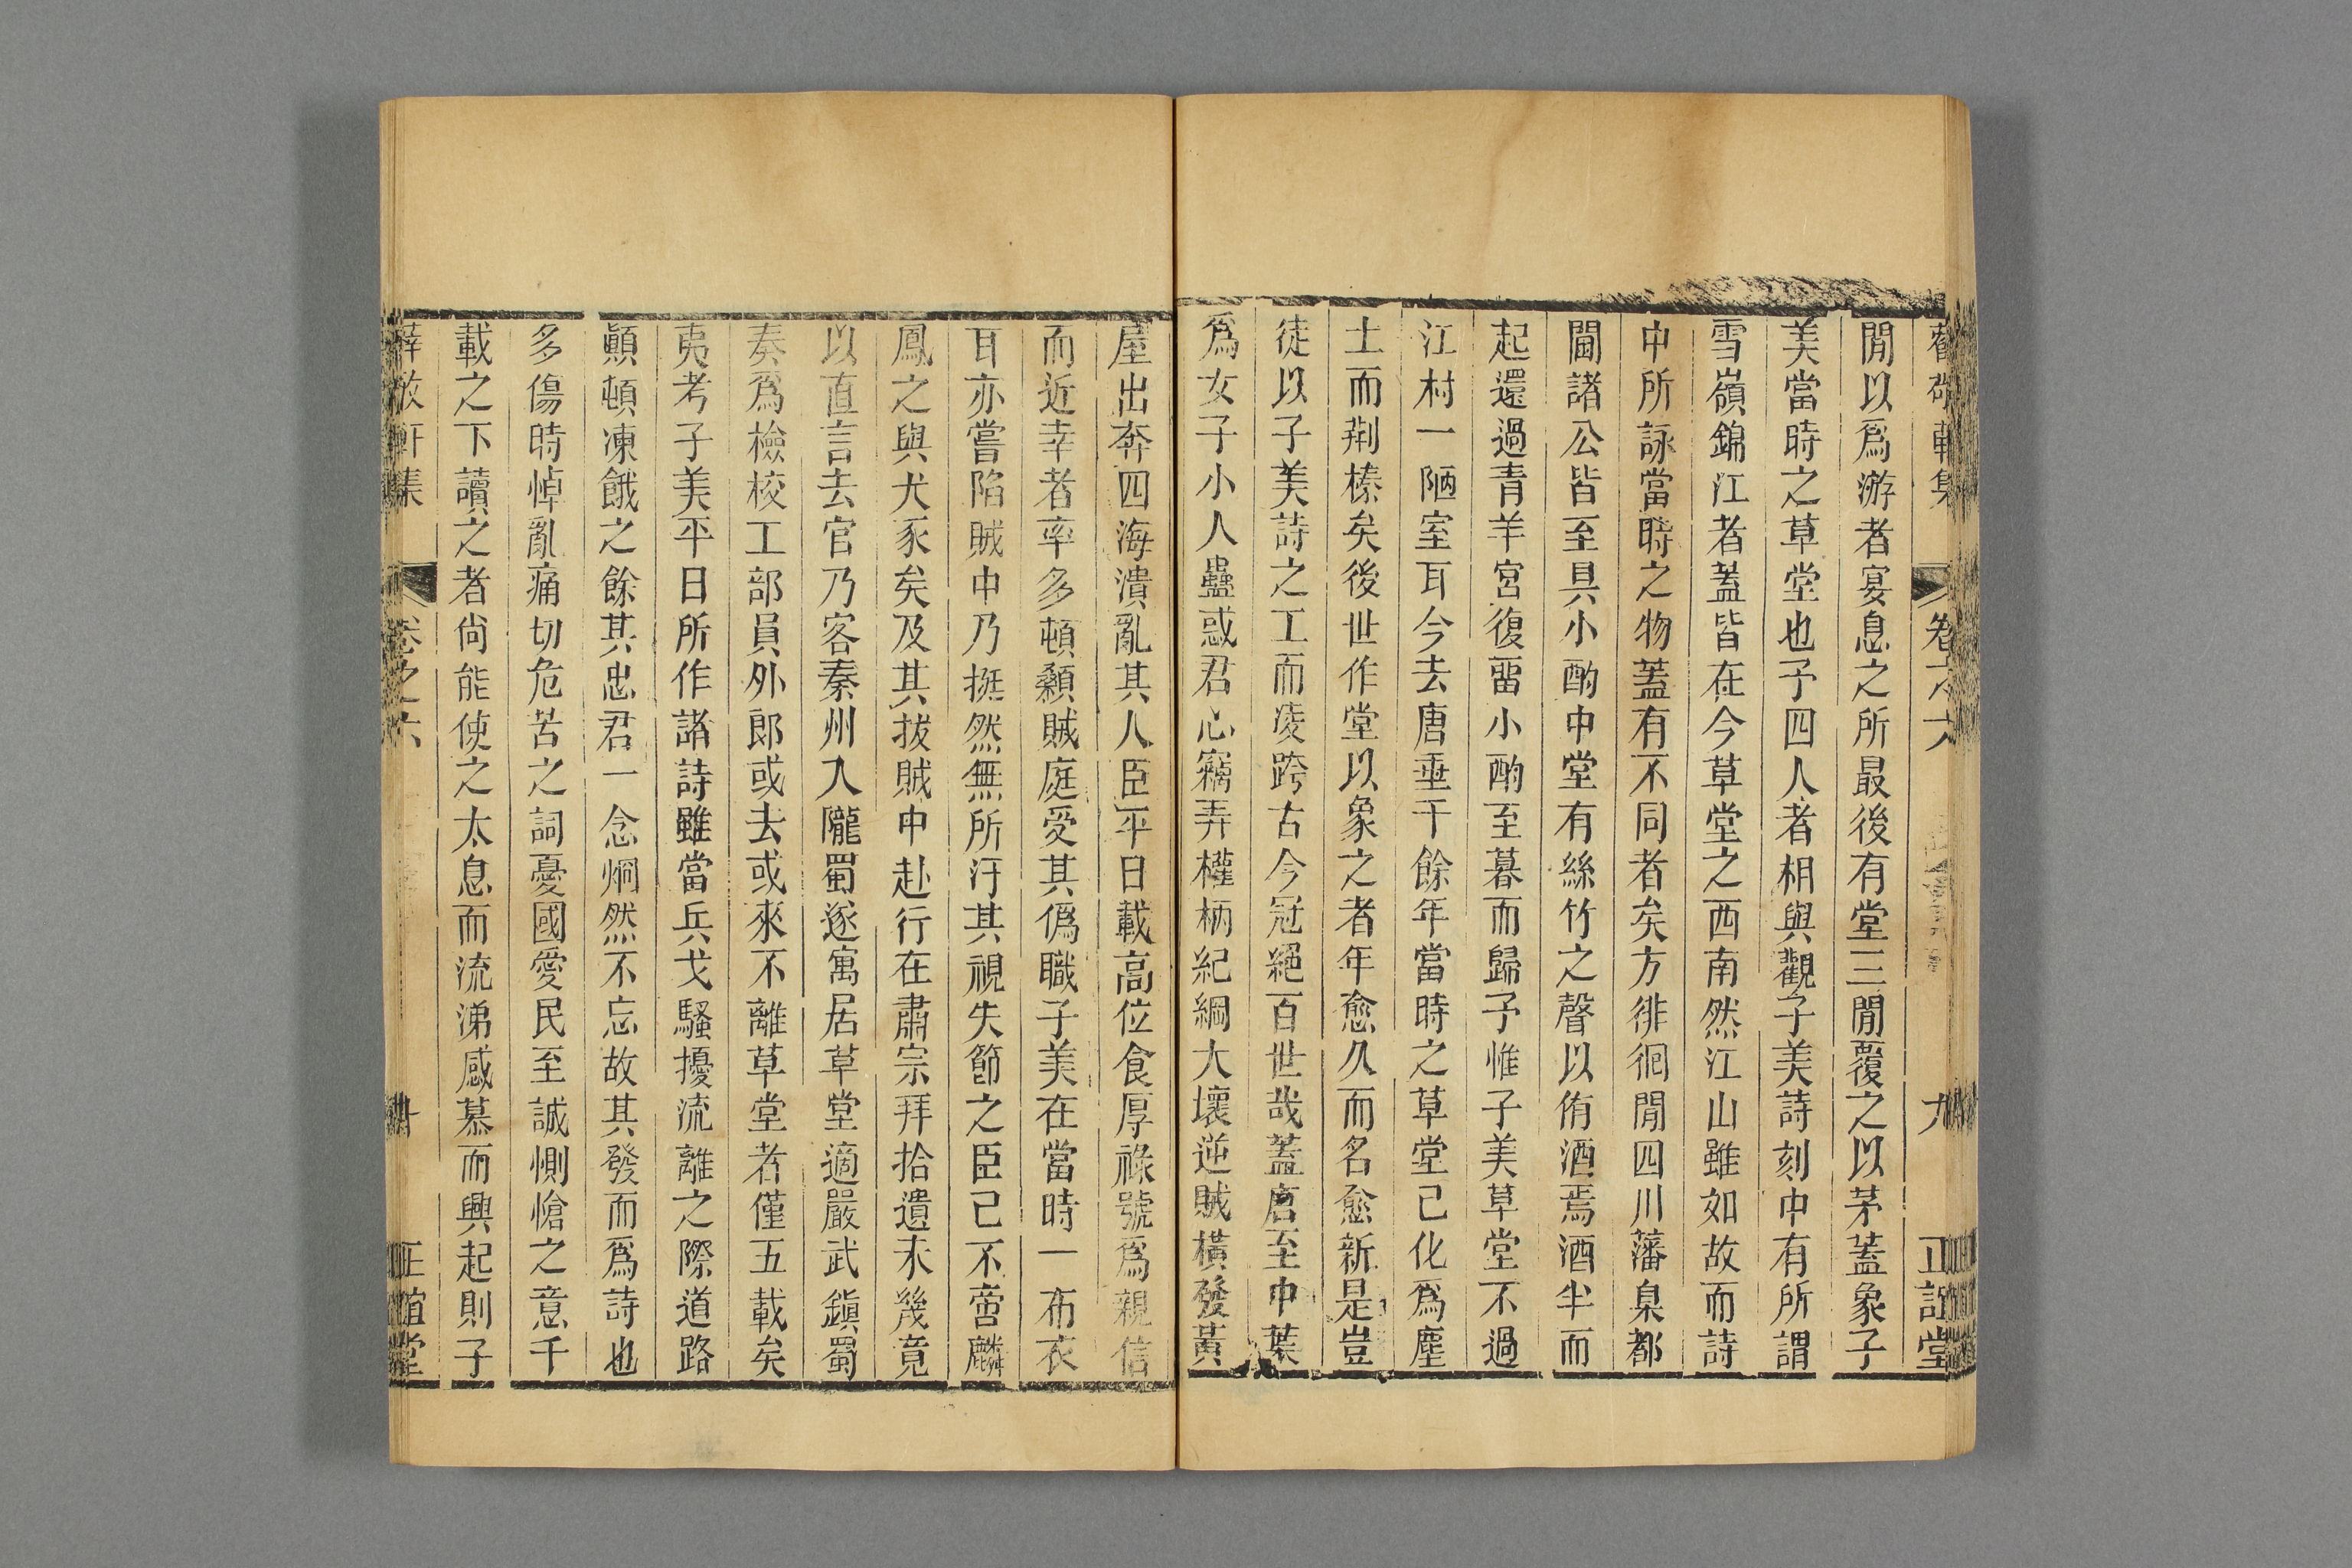 薛敬軒集 卷之六 九 正誼堂
閒以爲游者宴息之所最後有堂三閒覆之以茅蓋象子
美當時之草堂也予四人者相與觀子美詩刻中有所謂
雪嶺錦江者蓋皆在今草堂之西南然江山雖如故而詩
中所詠當時之物蓋有不同者矣方徘徊閒四川藩臬都
閫諸公皆至具小酌中堂有絲竹之聲以侑酒焉酒半而
起還過青羊宮復畱小酌至暮而歸予惟子美草堂不過
江村一陋室耳今去唐垂千餘年當時之草堂已化爲塵
土而荆榛矣後世作堂以象之者年愈久而名愈新是豈
徒以子美詩之工而凌跨古今冠絕百世哉蓋唐至中葉
爲女子小人蠱惑君心竊弄權柄紀綱大壞逆賊橫發黃
屋出奔四海潰亂其人臣平日載高位食厚祿號爲親信
而近幸者率多頓顙賊庭受其僞職子美在當時一布衣
耳亦嘗陷賊中乃挺然無所汙其視失節之臣已不啻麟
鳳之與犬豕矣及其拔賊中赴行在肅宗拜拾遺未幾竟
以直言去官乃客秦州入隴蜀遂寓居草堂適嚴武鎭蜀
奏爲檢校工部員外郎或去或來不離草堂者僅五載矣
夷考子美平日所作諸詩雖當兵戈騷擾流離之際道路
顚頓凍餓之餘其忠君一念炯然不忘故其發而爲詩也
多傷時悼亂痛切危苦之詞憂國愛民至誠惻愴之意千
載之下讀之者尙能使之太息而流涕感慕而興起則子
薛敬軒集 卷之六 十 正誼堂